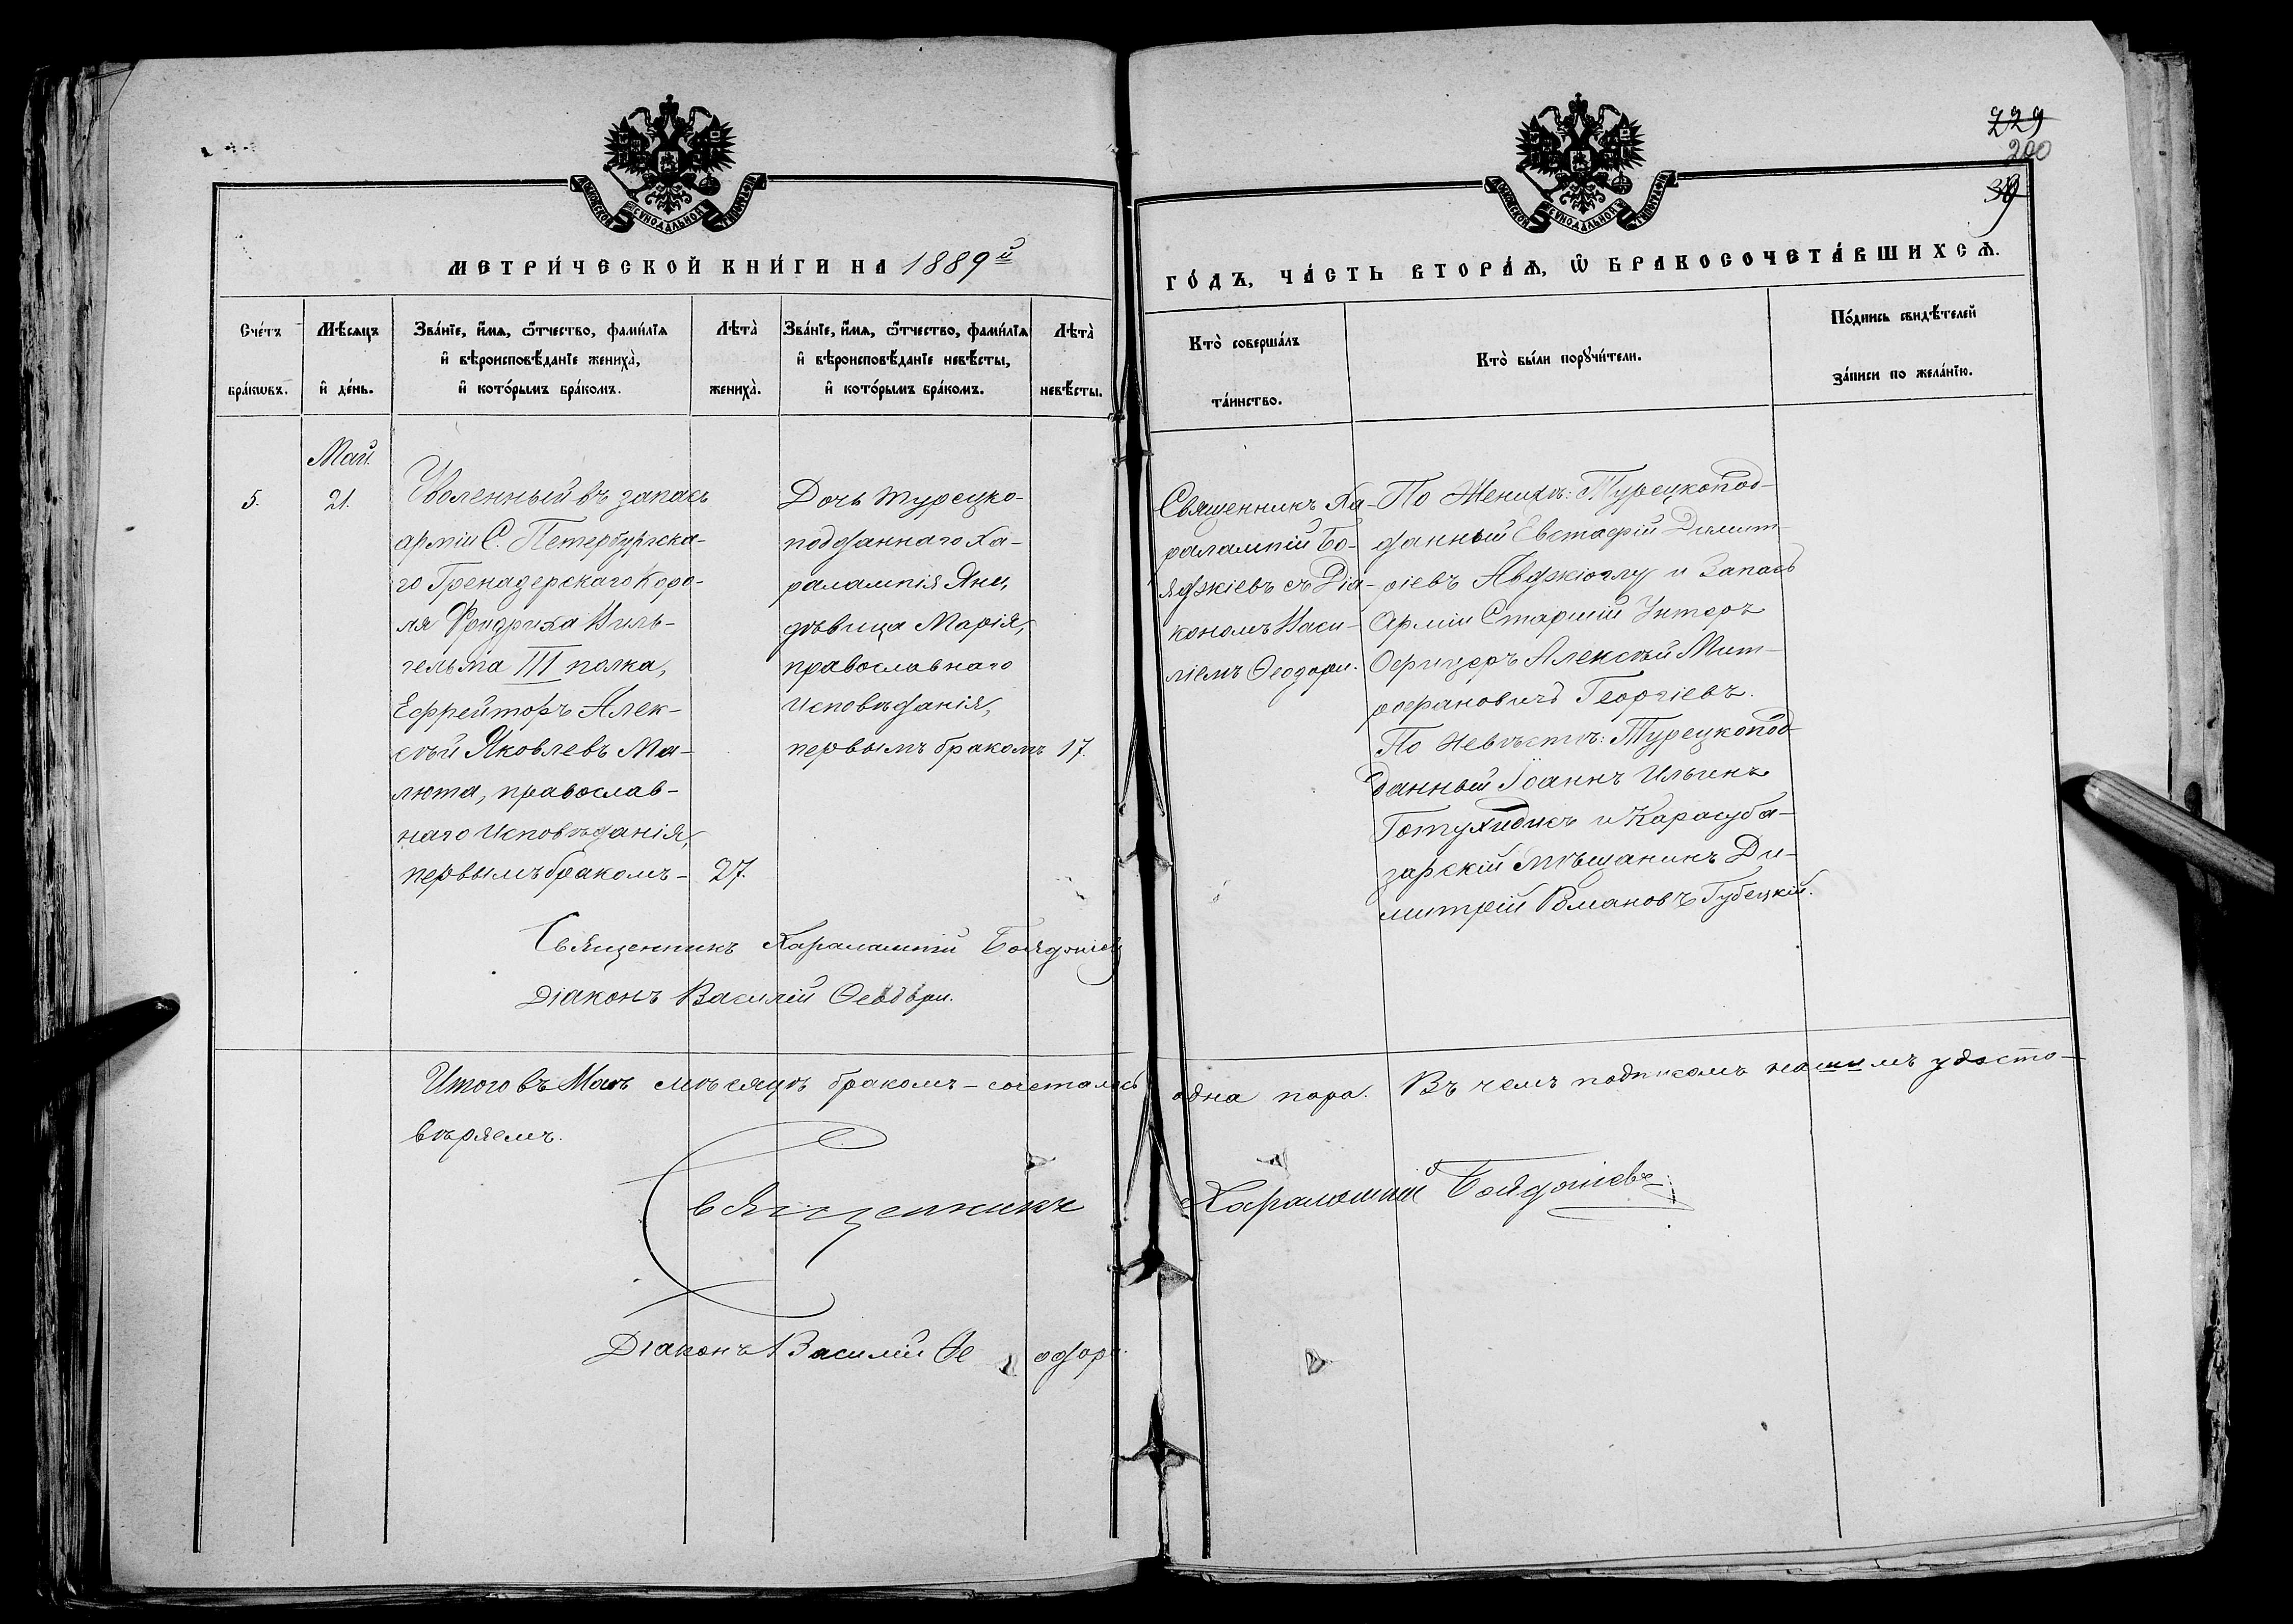 229
200
39
МОСКОВСКОЙ СѴНОДАЛЬНОЙ ТИПОГРАФІИ
МОСКОВСКОЙ СѴНОДАЛЬНОЙ ТИПОГРАФІИ
МЕТРИ́ЧЕСКОЙ КНИ́ГИ НА 1889й
ГО́ДЪ, ЧА́СТЬ ВТОРА́Ѧ, Ѽ БРАКОСОЧЕТА́ВШИХСѦ.
Сче́тъ бра́кѡвъ.
Мѣ́сяцъ и҆ де́нь.
Зва́нїе, и҆́мя, ѻ҆́тчество, фами́лїя
и҆ вѣроисповѣ́данїе жениха̀,
и҆ кото́рымъ бра́комъ.
Лѣта̀ жениха̀.
Зва́нїе, и҆́мя, ѻ҆́тчество, фами́лїя
и҆ вѣроисповѣ́данїе невѣ́сты,
и҆ кото́рымъ бра́комъ.
Лѣта̀ невѣ́сты.
Кто̀ соверша́лъ
та́инство.
Кто̀ бы́ли порꙋчи́тели.
По́дпись свидѣ́телей
за́писи по жела́нїю.
5.
Май.
21.
Уволенный въ запасъ
арміи С. Петербургска-
го Гренадерскаго Коро-
ля Фридриха Виль-
гельма III полка,
Ефрейторъ Алек-
сѣй Яковлевъ Ма-
люта, православ-
наго исповѣданія,
первымъ бракомъ-
27.
Дочь турецко-
подданнаго Ха-
ралампія Яни,
дѣвица Марія,
православнаго
исповѣданія,
первымъ бракомъ
17.
Священникъ Ха-
ралампій Бо-
яджіевъ съ Діа-
кономъ Васи-
ліемъ Ѳеодори.
По Женихѣ: Турецкопод-
данный Евстафій Димит-
ріевъ Авджіоглу и Запаса
Арміи Старшій Унтеръ
Офицеръ Алексѣй Мит-
рофановичъ Георгіевъ.
По Невѣстѣ: Турецкопод-
данный Іоаннъ Ильинъ
и Карасуба-
зарскій мѣщанинъ Ди-
митрій Романовъ Губецкій.
Священникъ Харалампій Бояджіевъ
Діаконъ Василій Ѳеодори.
Итого въ Маѣ мѣсяцѣ бракомъ-сочеталась одна пара. Въ чемъ подписомъ нашимъ удосто-
вѣряемъ.
Священникъ Харалампій Бояджіевъ
Діаконъ Василій Ѳеодори.